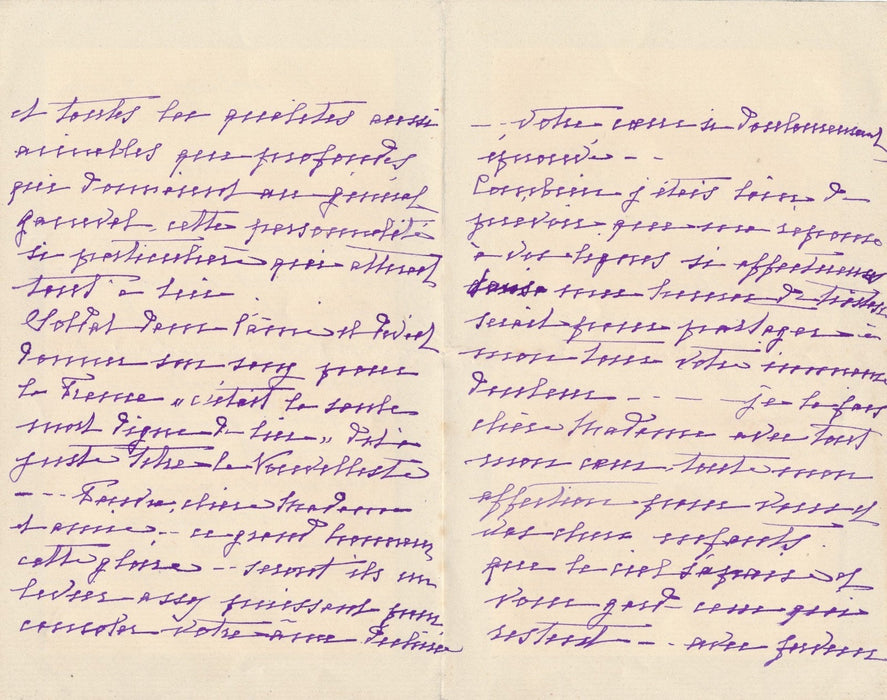 et toutes les qualités aussi
aimables que profondes
qui donnaient au général
cette personnalité
si particulière qui attirait
tout à lui
Soldat dans l'âme il devait
donner son sang pour
la France "c'était la seule
mort digne de lui" dit à
juste titre le Nouvelliste
--- chère Madame
et amie -- ce grand honneur
cette gloire -- seront ils un
levier assez puissant pour
consoler votre âme
-- votre cœur si douloureusement
éprouvé --
Combien j'étais loin de
prévoir que ma réponse
à vos lignes si affectueuses
serait pour partager à
mon tour votre immense
douleur - - - - je le fais
chère Madame avec tout
mon cœur, toute mon
affection pour vous et
vos chers enfants.
que le ciel et
vous gard ceux qui
restent -- avec ferveur